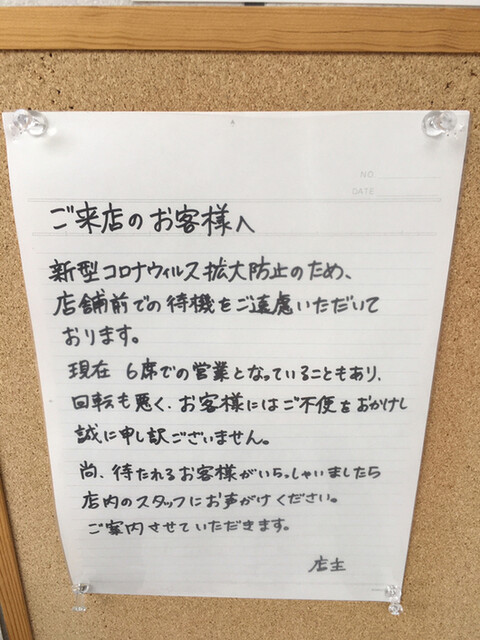 NO
DATE
ご来店のお客様へ
新型コロナウィルス拡大防止のため、
店舗前での待機をご遠慮いただいて
おります。
現在 6席での営業となっていることもあり、
回転も悪く、お客様にはご不便をおかけし
誠に申し訳ございません。
尚、待たれるお客様がいらっしゃいましたら
店内のスタッフにお声がけください。
ご案内させていただきます。
店主